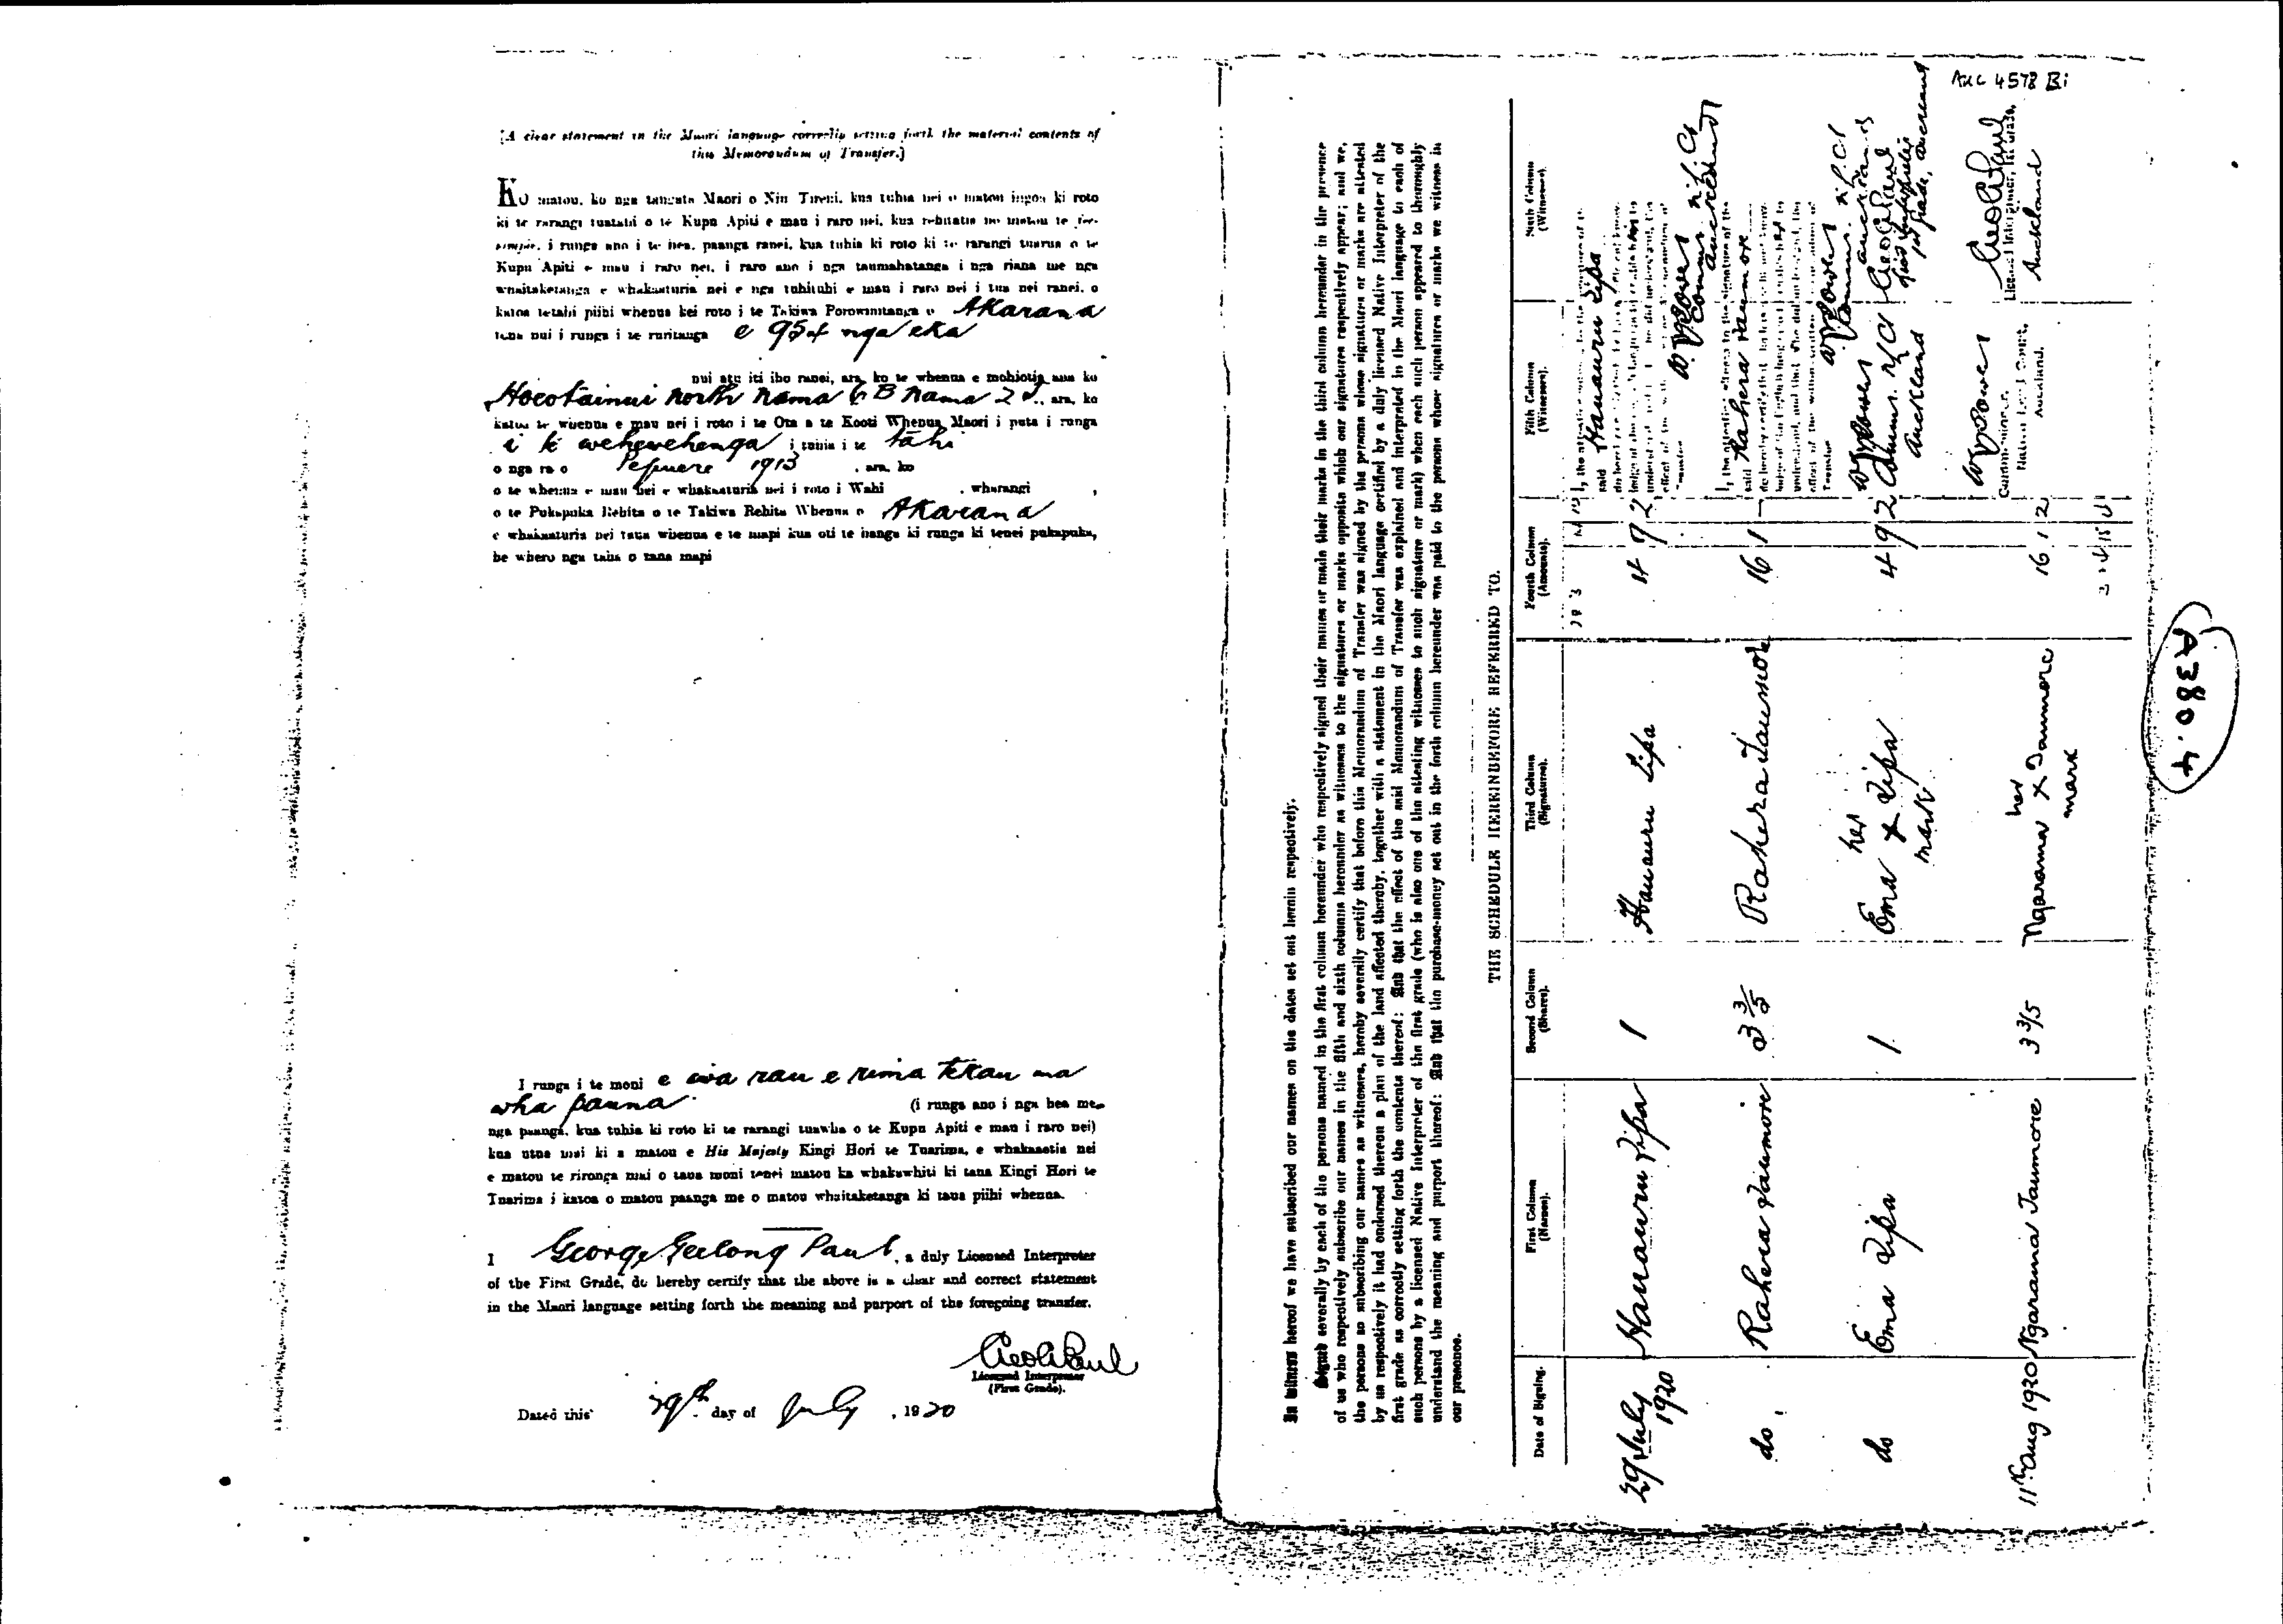 [A clear statement in the Maori language correctly setting forth the material contents of
this Memorandum of Transfer.]
Ko matou, ko nga tangata Maori o Niu Tireni, kua tuhia nei o matou ingoa ki roto
ki te rarangi tuatahi o te Kupu Apiti e mau i raro nei, kua rehitatia no matou te fee-
simple, i runga ano i te hea, paanga ranei, kua tuhia ki roto ki te rarangi tuarua o te
Kupu Apiti e mau i raro nei, i raro ano i nga taumahatanga i nga riana me nga
whaitaketanga e whakaaturia nei e nga tuhituhi e mau i raro nei i tua nei ranei, o
katoa tetahi piihi whenua kei roto i te Takiwa Porowinitanga o Akarana
tona nui i runga i te ruritanga e 954 nga eka
nui atu iti iho ranei, ara, ko te whenua e mohiotia ana ko
Hoeotainui North Nama 6B Nama 2, ara, ko
katoa te whenua e mau nei i roto i te Ota a te Kooti Whenua Maori i puta i runga
i te wehewehenga i tuhia i te tahi
o nga ra o Pepuere 1913, ara, ko
o te whenua e mau nei e whakaaturia nei i roto i Wahi , wharangi ,
o te Pukapuka Rehita o te Takiwa Rehita Whenua o Akarana
e whakaaturia nei taua whenua e te mapi kua oti te hanga ki runga ki tenei pukapuka,
he whero nga taha o tana mapi
I runga i te moni e iwa rau e rima tekau ma
wha pauna (i runga ano i nga hea me
nga paanga, kua tuhia ki roto ki te rarangi tuawha o te Kupu Apiti e mau i raro nei)
kua utua mai ki a matou e His Majesty Kingi Hori te Tuarima, e whakaaetia nei
e matou te rironga mai o taua moni tenei matou ka whakawhiti ki taua Kingi Hori te
Tuarima i katoa o matou paanga me o matou whaitaketanga ki taua piihi whenua.
I George Geelong Paul, a duly Licensed Interpreter
of the First Grade, do hereby certify that the above is a clear and correct statement
in the Maori language setting forth the meaning and purport of the foregoing transfer.
Geo G Paul
Licensed Interpreter
(First Grade).
Dated this 29th day of July, 1920
AKC 4578 Bi
In witness hereof we have subscribed our names on the dates set out herein respectively.
Signed severally by each of the persons named in the first column hereunder who respectively signed their names or made their marks in the third column hereunder in the presence
of us who respectively subscribe our names in the fifth and sixth columns hereunder as witnesses to the signatures or marks opposite which our signatures respectively appear; and we,
the persons so subscribing our names as witnesses, hereby severally certify that before this Memorandum of Transfer was signed by the persons whose signatures or marks are attested
by us respectively it had endorsed thereon a plan of the land affected thereby, together with a statement in the Maori language certified by a duly licensed Native Interpreter of the
first grade as correctly setting forth the contents thereof; And that the effect of the said Memorandum of Transfer was explained and interpreted in the Maori language to each of
such persons by a licensed Native Interpreter of the first grade (who is also one of the attesting witnesses to such signature or mark) when each such person appeared to thoroughly
understand the meaning and purport thereof: And that the purchase-money set out in the forth column hereunder was paid to the persons whose signatures or marks we witness in
our presence.
THE SCHEDULE HEREINBEFORE REFERRED TO.
Date of Signing. First Column (Names). Second Column (Shares). Third Column (Signatures). Fourth Column (Amounts). Fifth Column (Witnesses). Sixth Column (Witnesses).
29 July 1920 Hauauru Tipa 1 Hauauru Tipa 4 9 2
do. Rahera Taumore 3 3/5 Rahera Taumore 16 1
do Ema Tipa 1 Ema x Tipa her mark 4 9 2
11th Aug 1920 Ngarama Taumore 3 3/5 Ngarama x Taumore her mark 16 1 2
said Hauauru Tipa
said Rahera Taumore
Auckland
Geo G Paul
Licensed Interpreter, 1st Grade,
Auckland
Native Land Court,
Auckland.
A380.4